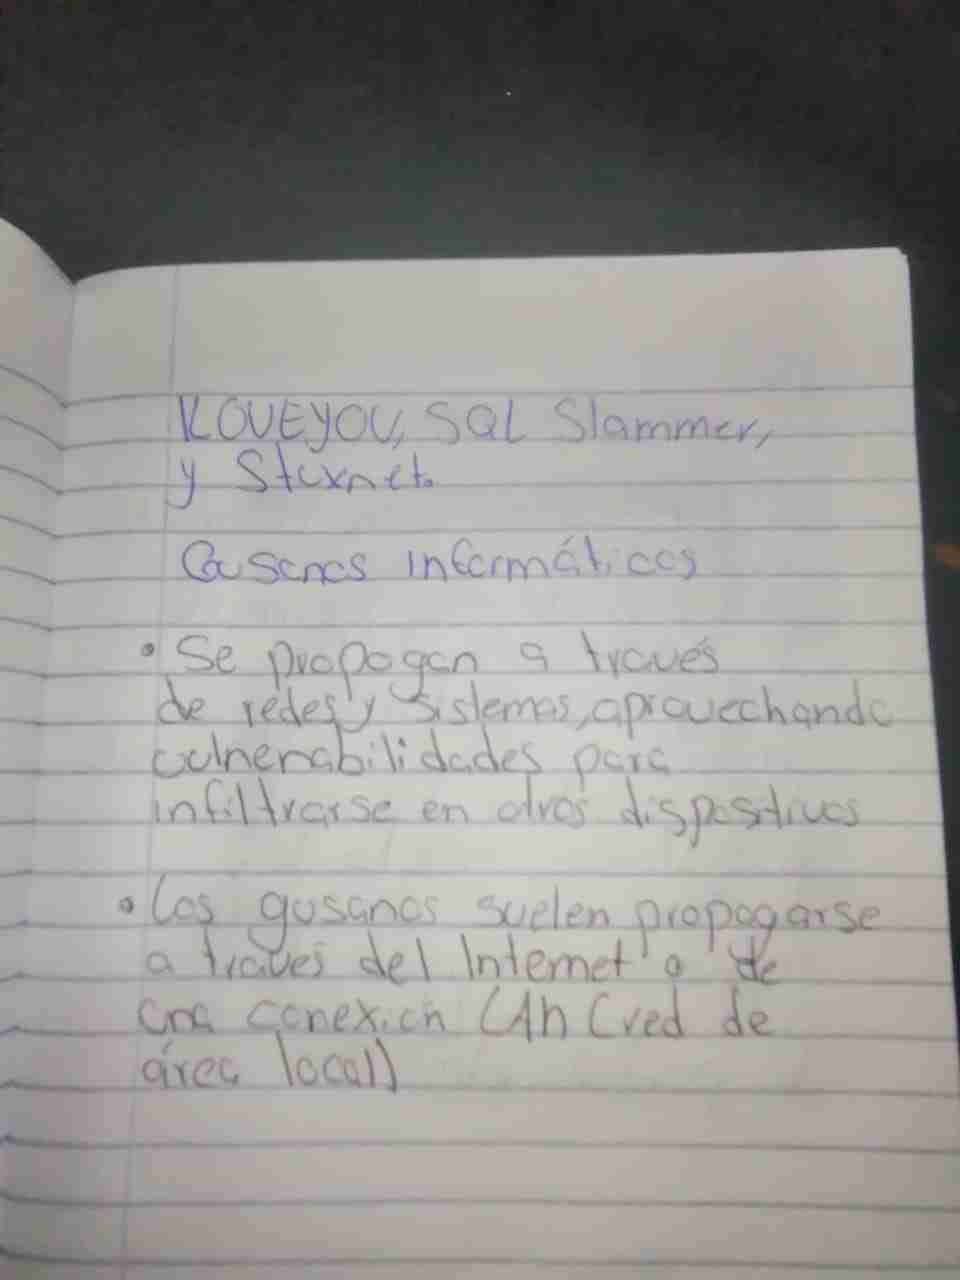 ILOVEYOU, SQL Slammer,
y Stuxnet.
Gusanos informáticos
• Se propagan a través
de redes y sistemas, aprovechando
vulnerabilidades para
infiltrarse en otros dispositivos
• Los gusanos suelen propagarse
a través del Internet o de
una conexión LAN (red de
área local)